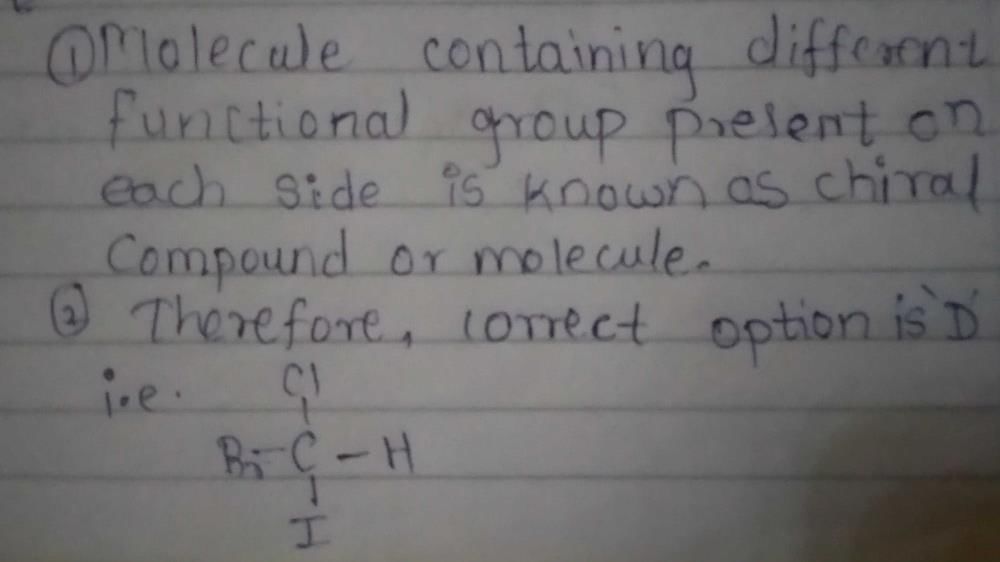 ① Molecule containing different
functional group present on
each side is known as chiral
Compound or molecule.
② Therefore, correct option is 'D'
i.e. Cl
Br-C-H
I